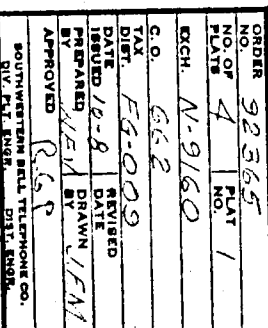 ORDER NO. 92365
NO. OF PLATS 4 PLAT NO. 1
EXCH. N-9160
C. O. 662
TAX DIST. FG-009
DATE ISSUED 10-8 REVISED DATE
PREPARED BY DRAWN BY JFM
APPROVED RGP
SOUTHWESTERN BELL TELEPHONE CO.
DIV. PLT. ENGR. DIST. ENGR.